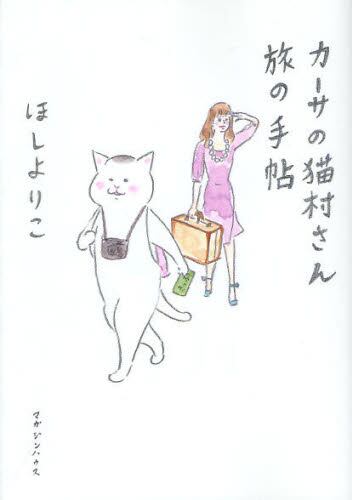 カーサの猫村さん
旅の手帖
ほしよりこ
マガジンハウス